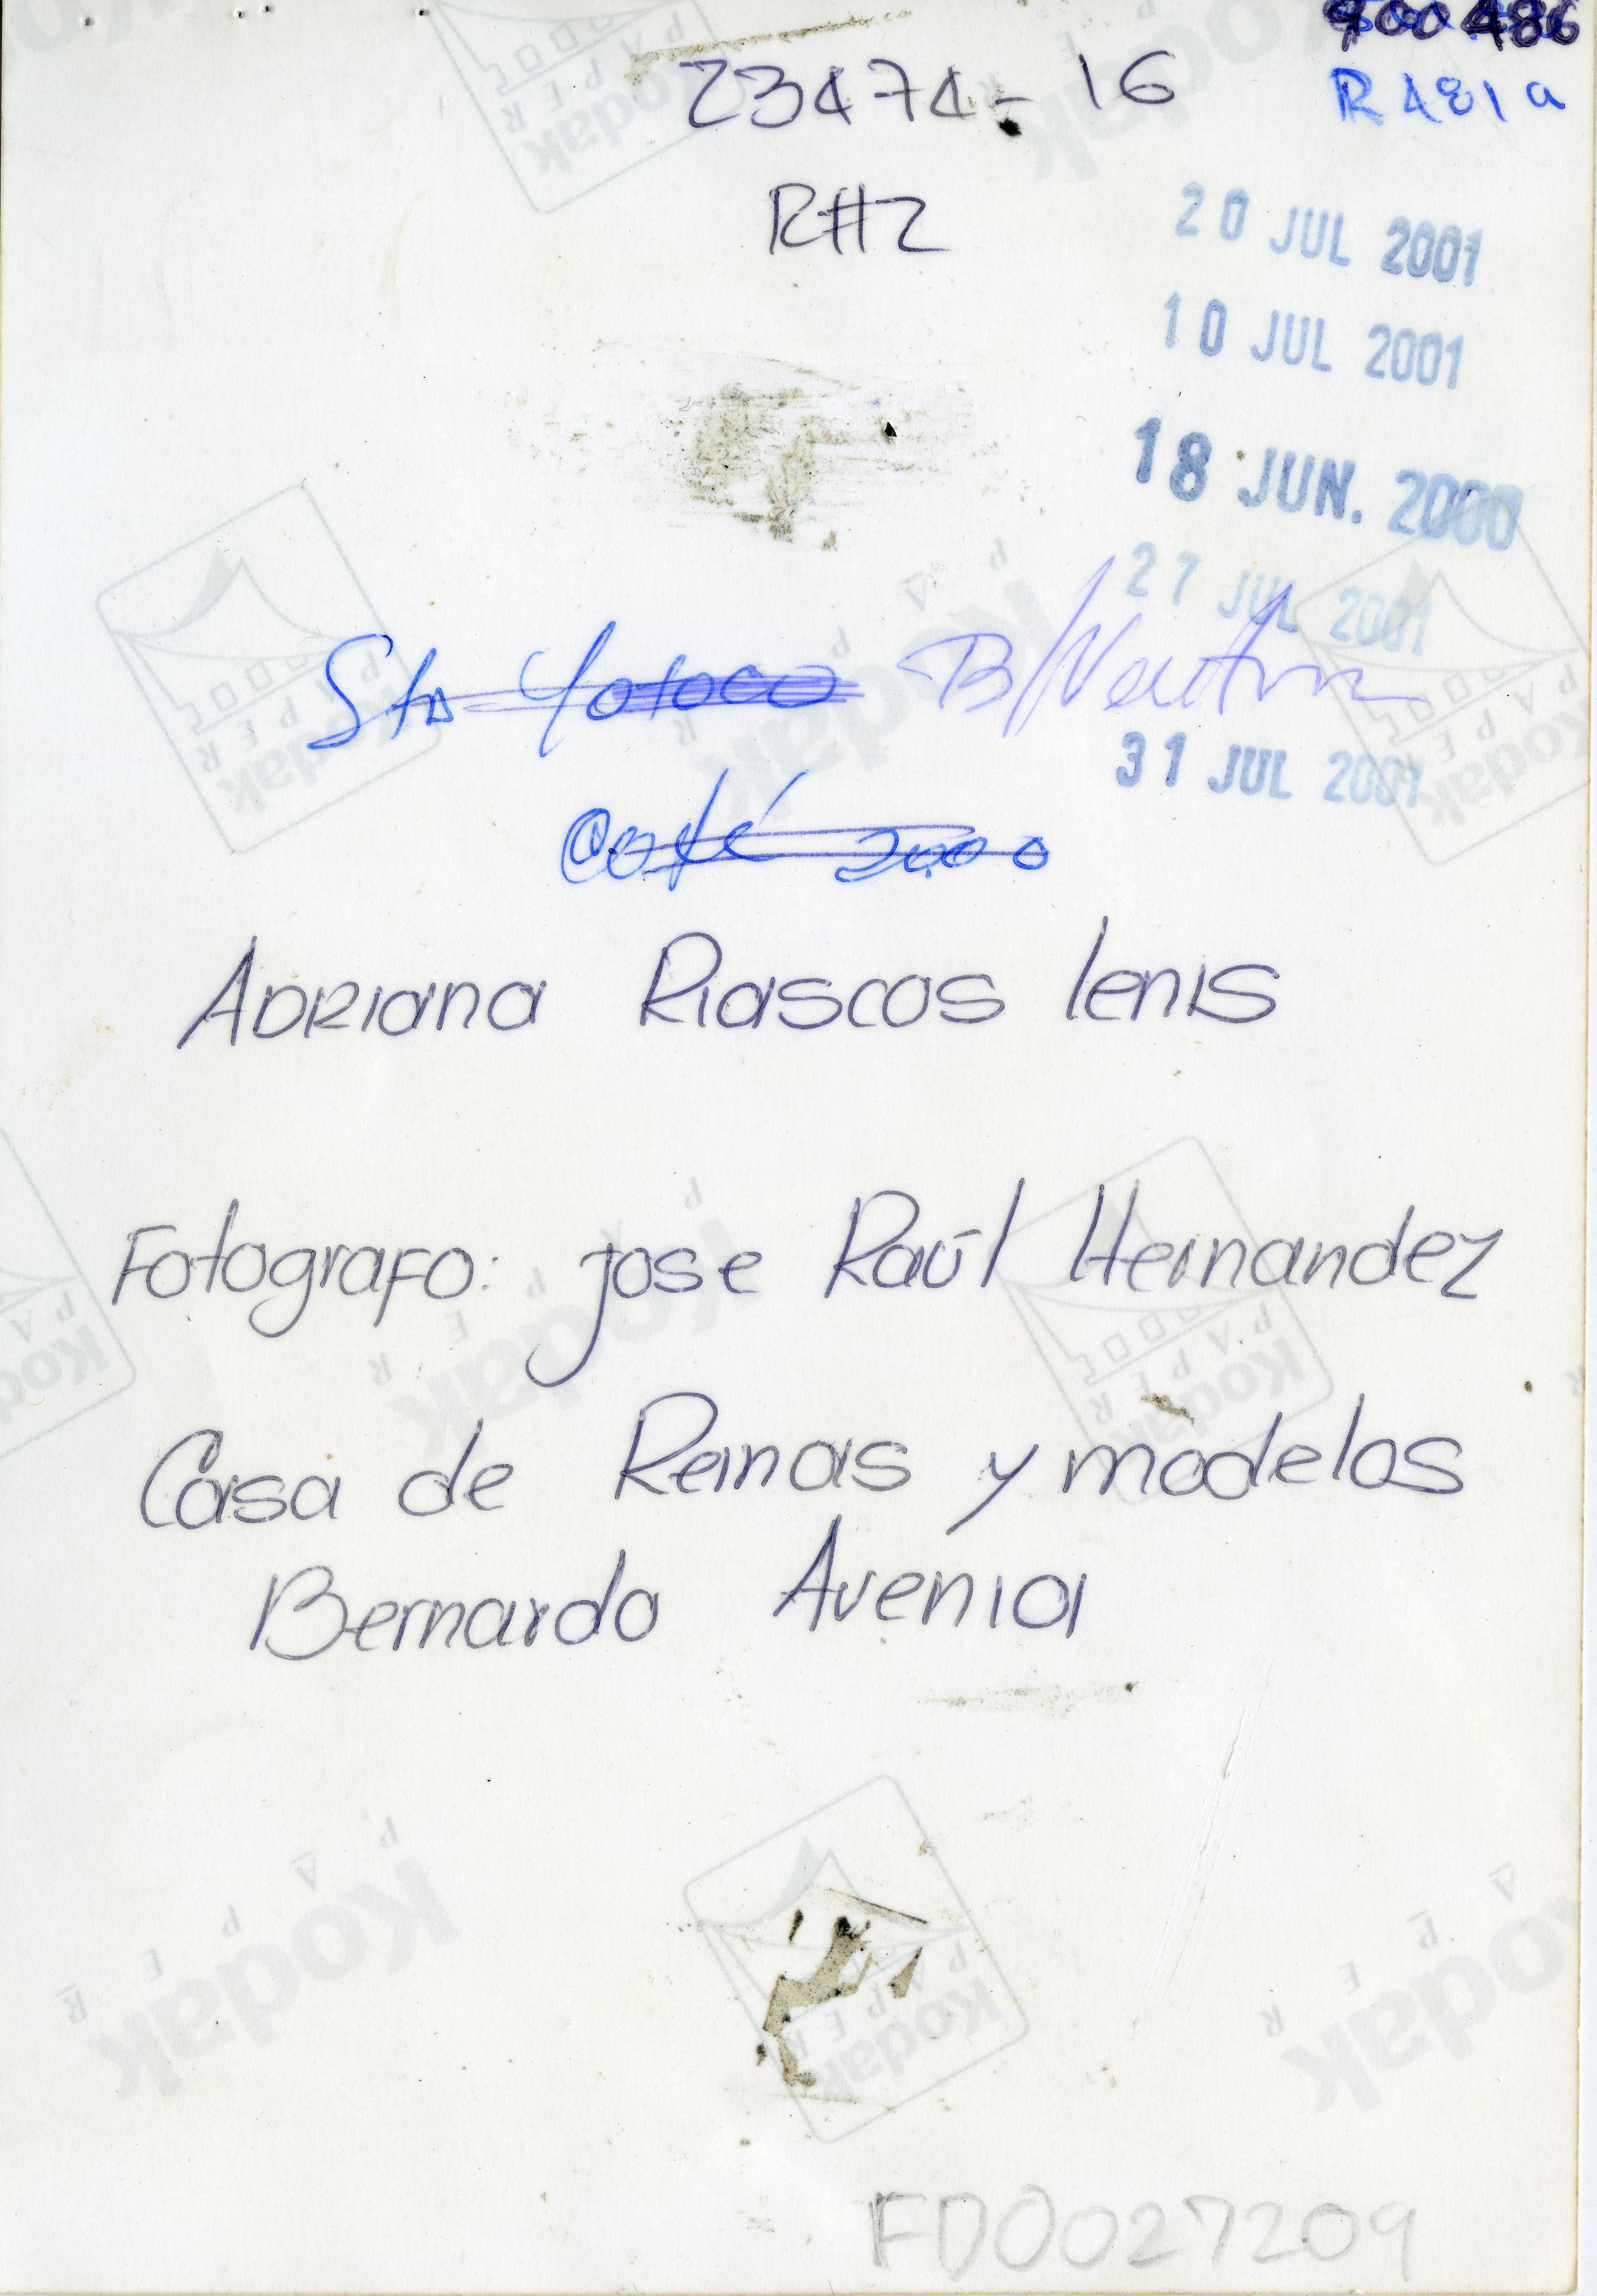 900486
23474-16
R481a
RHZ
20 JUL 2001
10 JUL 2001
18 JUN. 2000
27 JUL 2001
Sta Yotoco B/
31 JUL 2001
Café 2000
ADRIana Riascos lenis
Fotografo: jose Raúl Hernandez
Casa de Reinas y modelos
Bernardo Avenia
FD0027209
Kodak
PAPER